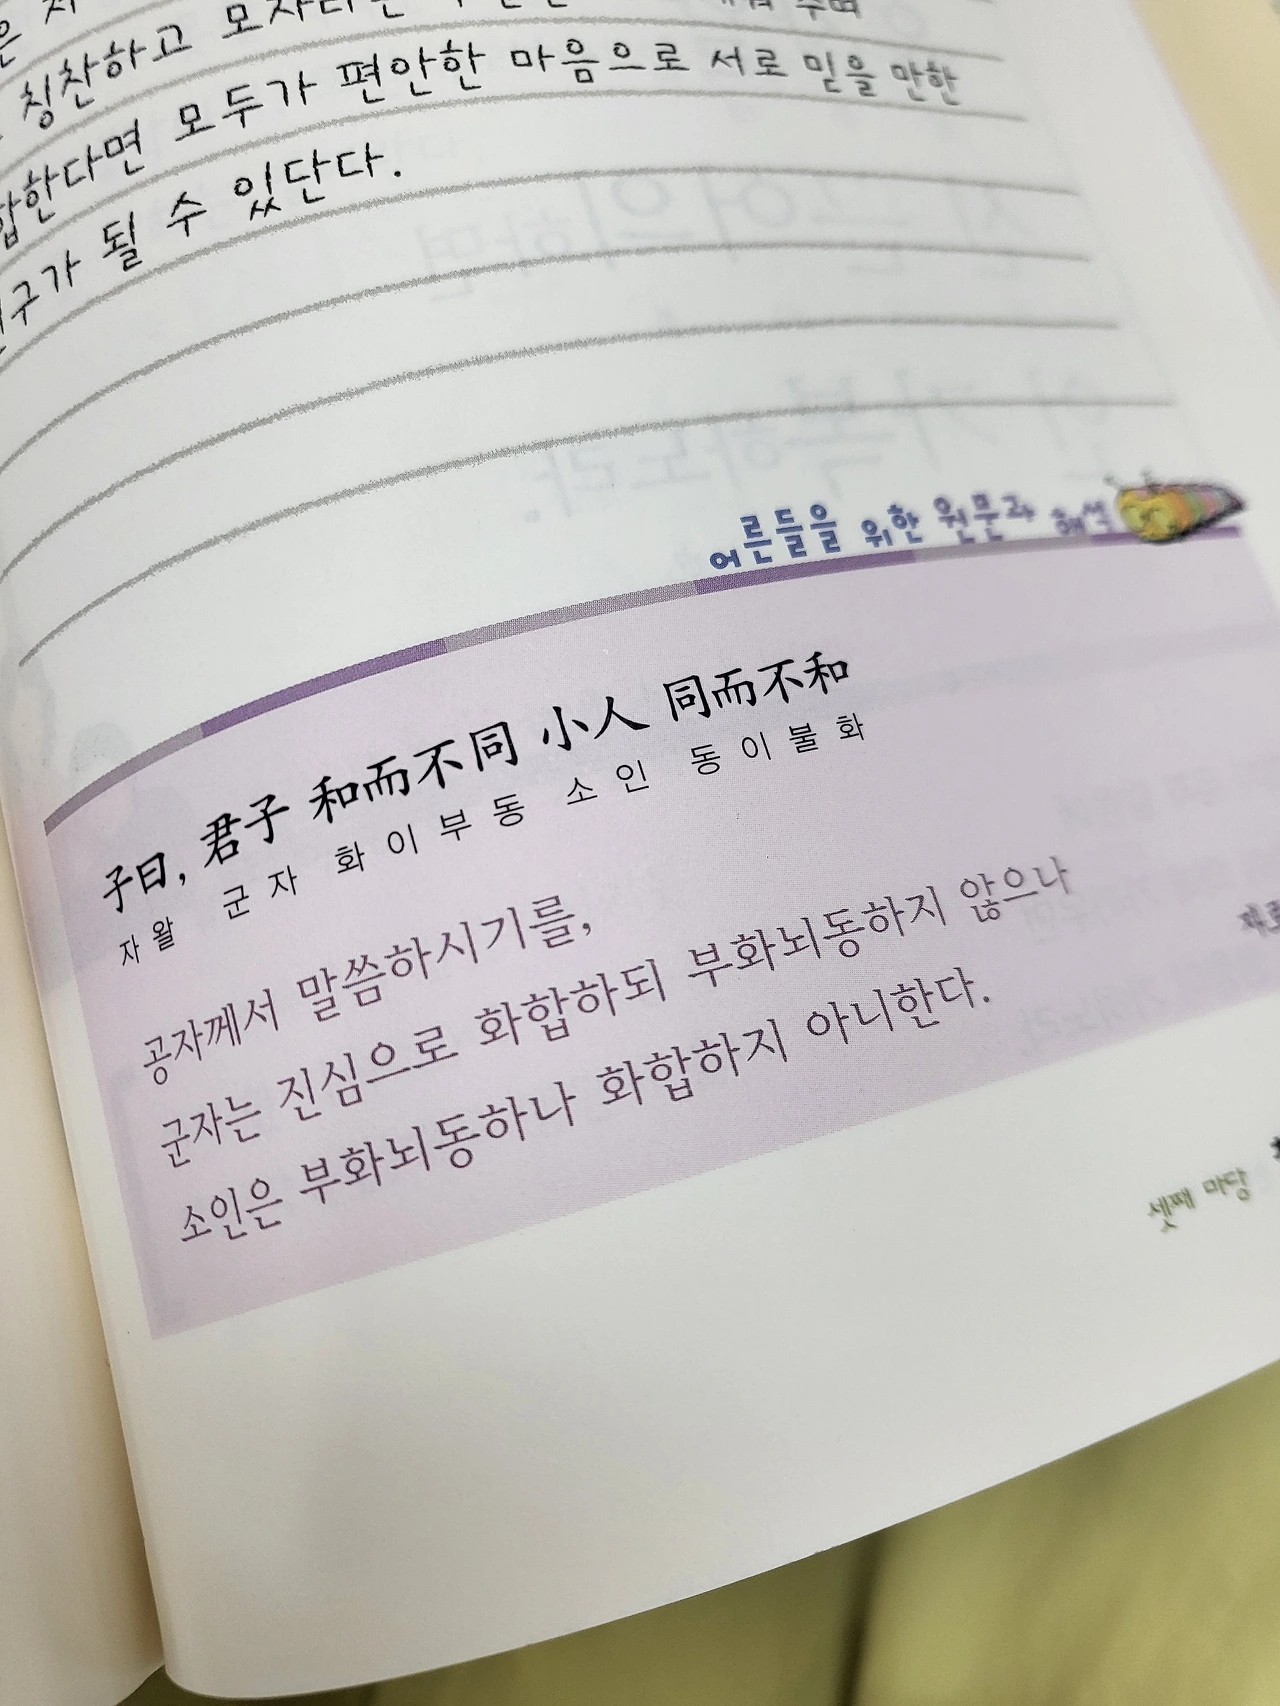 칭찬하고
한다면 모두가 편안한 마음으로 서로 믿을 만한
구가 될 수 있단다.
어른들을 위한 원문과 해석
子曰, 君子 和而不同 小人 同而不和
자왈 군자 화이부동 소인 동이불화
공자께서 말씀하시기를,
군자는 진심으로 화합하되 부화뇌동하지 않으나
소인은 부화뇌동하나 화합하지 아니한다.
셋째 마당